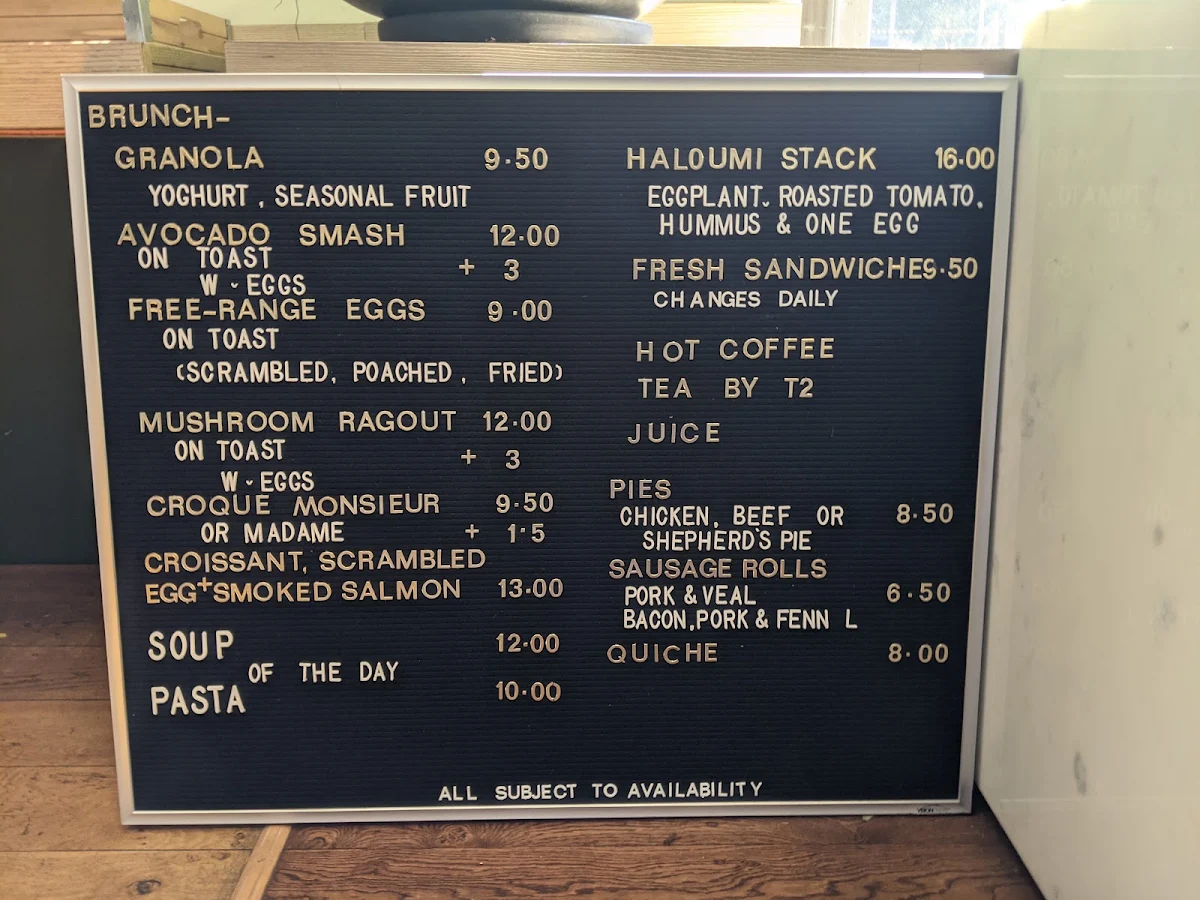 BRUNCH-
GRANOLA 9.50
YOGHURT, SEASONAL FRUIT
AVOCADO SMASH 12.00
ON TOAST
W - EGGS + 3
FREE-RANGE EGGS 9.00
ON TOAST
(SCRAMBLED, POACHED, FRIED)
MUSHROOM RAGOUT 12.00
ON TOAST
W - EGGS + 3
CROQUE MONSIEUR 9.50
OR MADAME + 1.5
CROISSANT, SCRAMBLED
EGG+SMOKED SALMON 13.00
SOUP 12.00
OF THE DAY
PASTA 10.00
HALOUMI STACK 16.00
EGGPLANT, ROASTED TOMATO,
HUMMUS & ONE EGG
FRESH SANDWICHE9.50
CHANGES DAILY
HOT COFFEE
TEA BY T2
JUICE
PIES
CHICKEN, BEEF OR 8.50
SHEPHERD'S PIE
SAUSAGE ROLLS
PORK & VEAL 6.50
BACON,PORK & FENN L
QUICHE 8.00
ALL SUBJECT TO AVAILABILITY